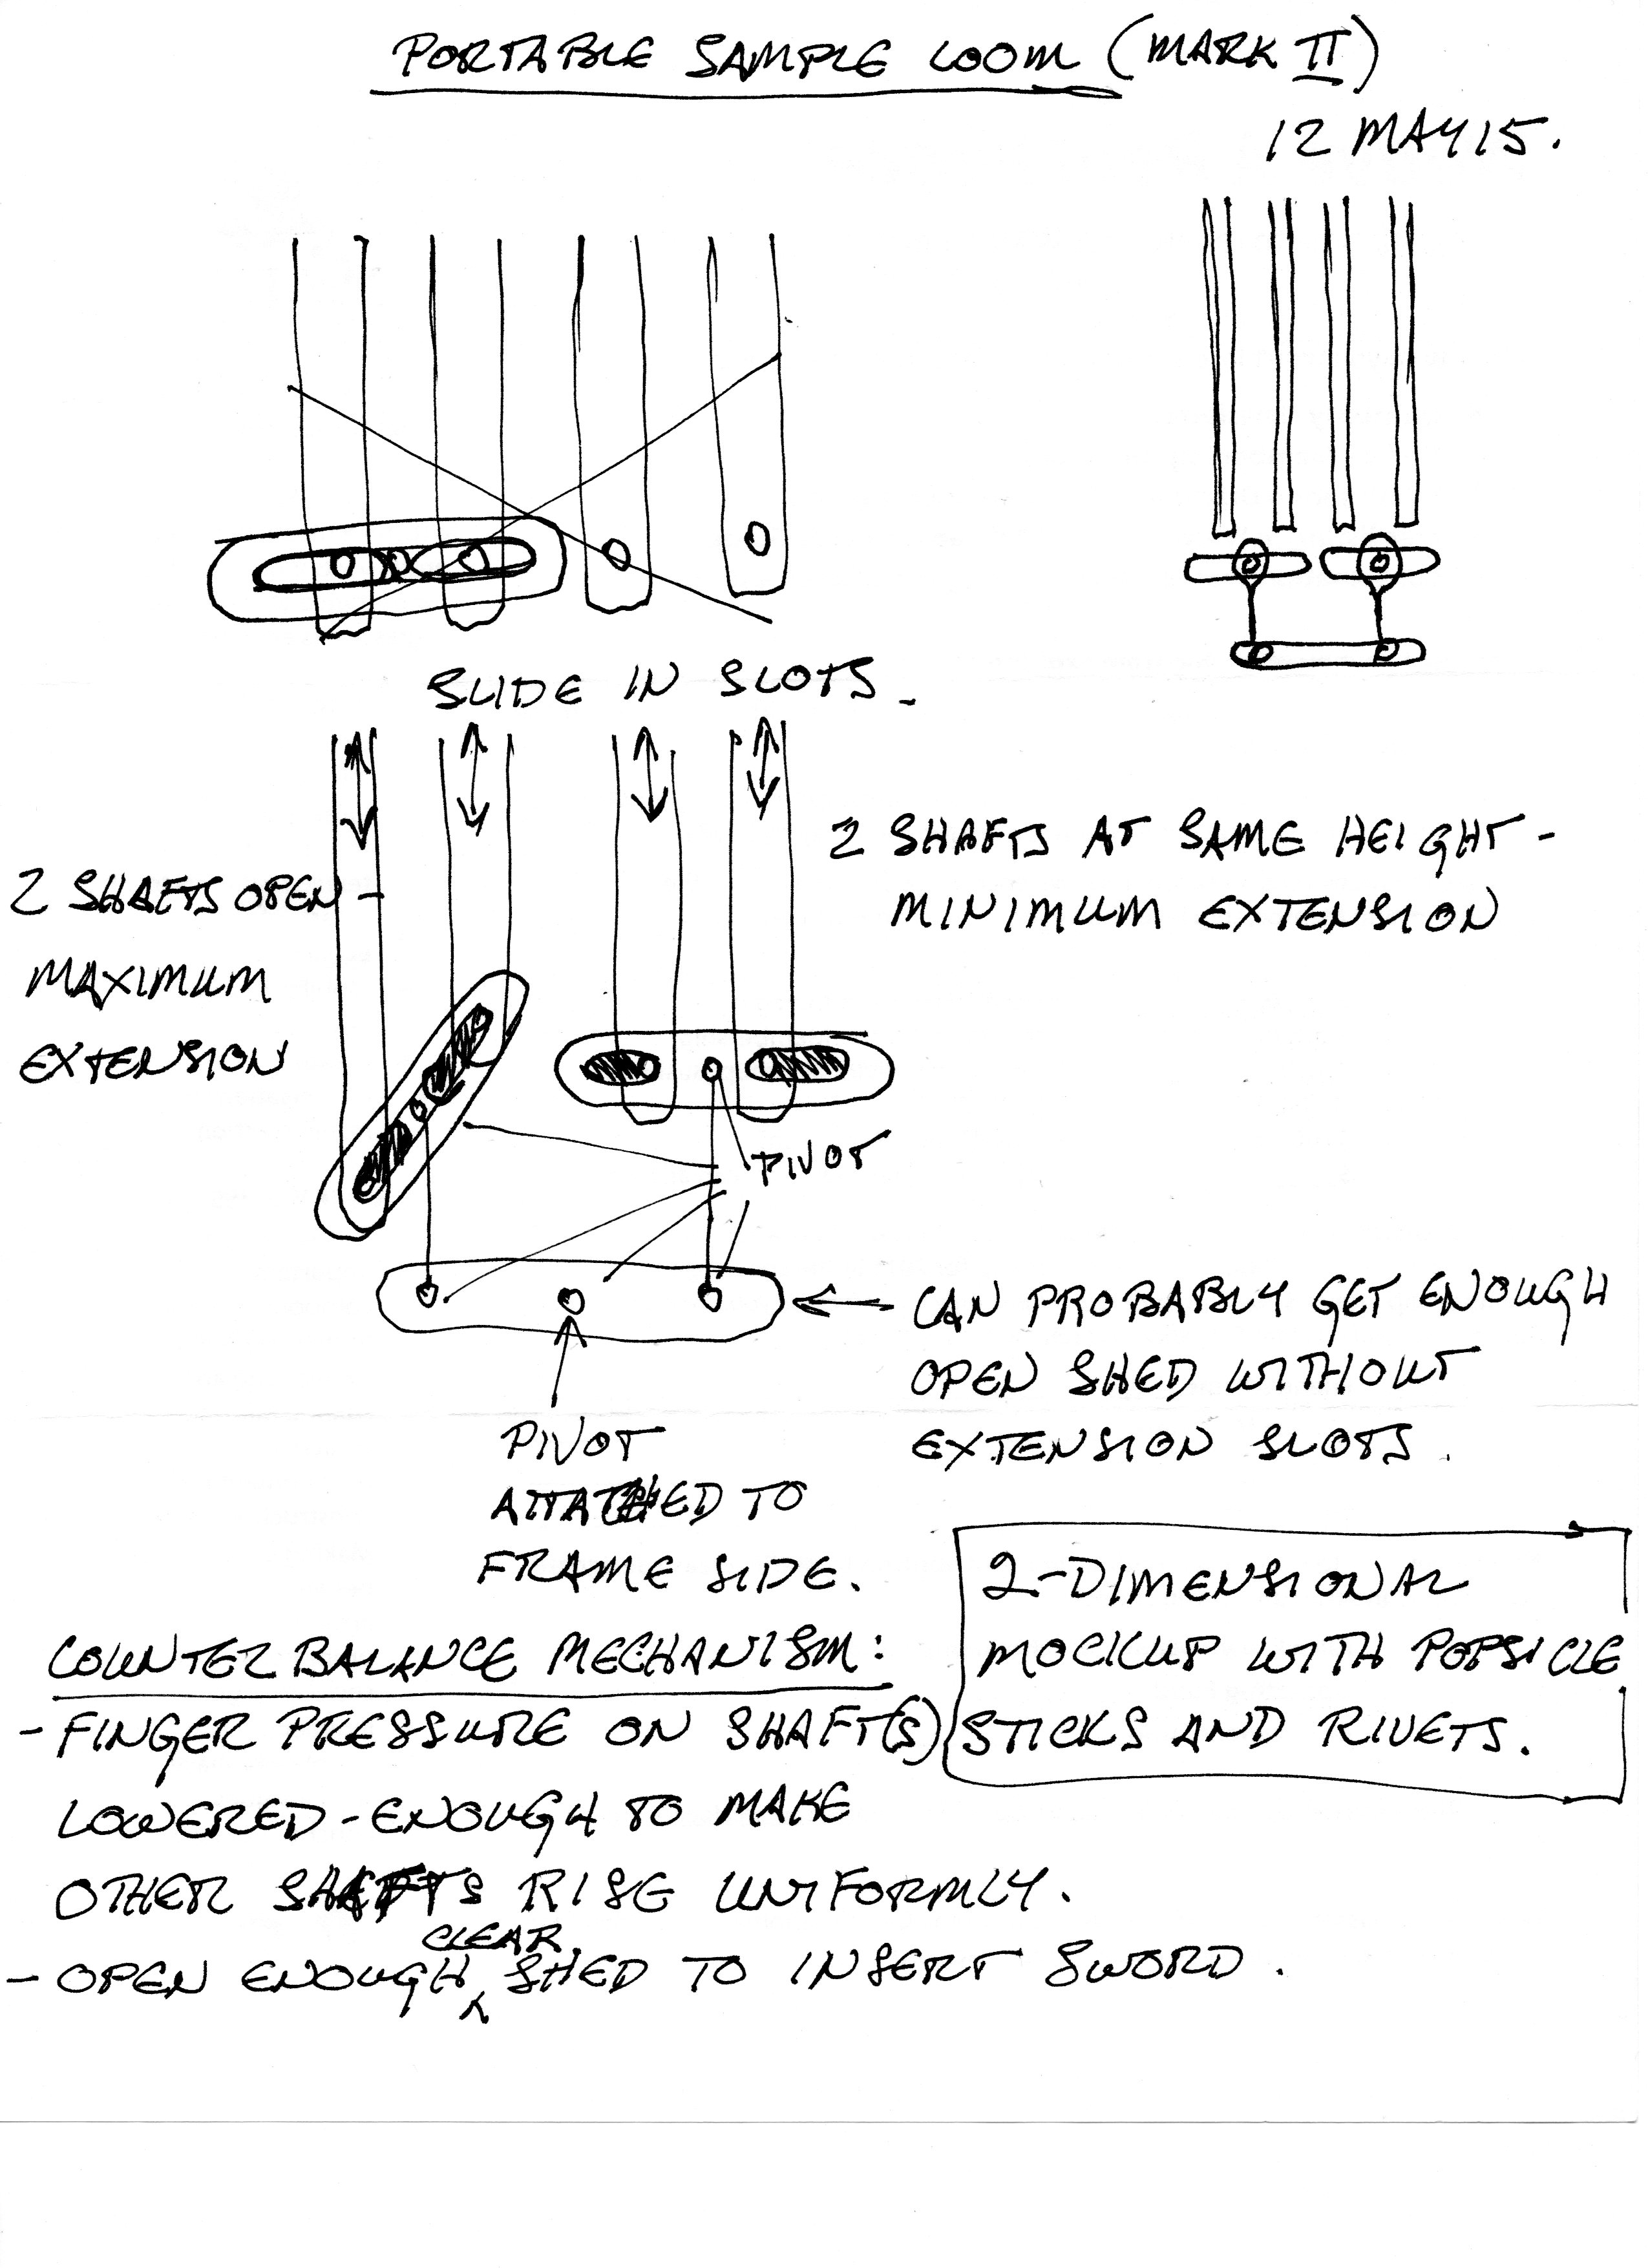 PORTABLE SAMPLE LOOM (MARK II)
12 MAY 15.
SLIDE IN SLOTS.
2 SHAFTS OPEN -
MAXIMUM
EXTENSION
2 SHAFTS AT SAME HEIGHT -
MINIMUM EXTENSION
PIVOT
CAN PROBABLY GET ENOUGH
OPEN SHED WITHOUT
EXTENSION SLOTS.
PIVOT
ATTATCHED TO
FRAME SIDE.
2-DIMENSIONAL
MOCKUP WITH POPSICLE
STICKS AND RIVETS.
COUNTER BALANCE MECHANISM:
- FINGER PRESSURE ON SHAFT(S)
LOWERED - ENOUGH TO MAKE
OTHER SHAFTS RISE UNIFORMLY.
CLEAR
- OPEN ENOUGH ^ SHED TO INSERT SWORD.